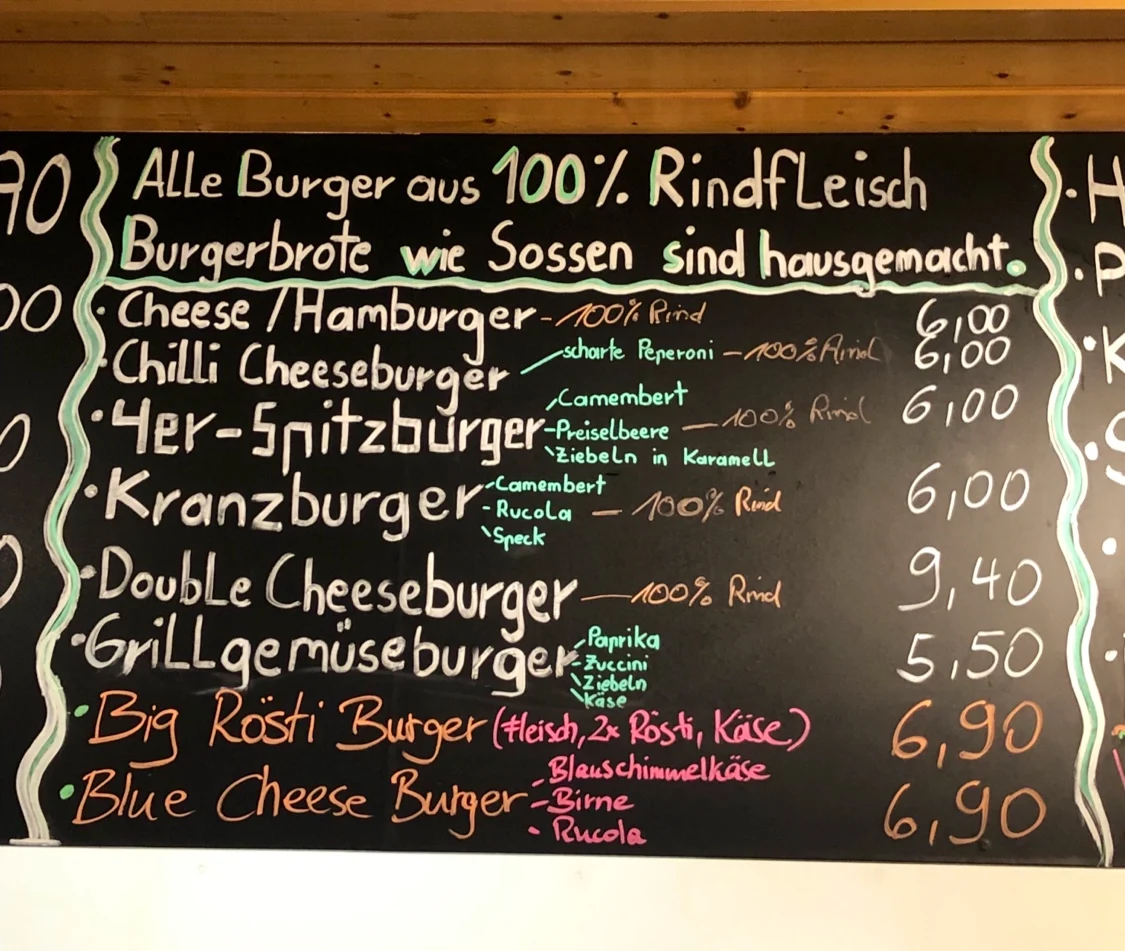 Alle Burger aus 100% Rindfleisch
Burgerbrote wie Sossen sind hausgemacht.
· Cheese / Hamburger - 100% Rind 6,00
· Chilli Cheeseburger scharfe Peperoni - 100% Rind 6,00
· 4er-Spitzburger - 100% Rind 6,00
Camembert
- Preiselbeere
Ziebeln in Karamell
· Kranzburger - 100% Rind 6,00
- Camembert
- Rucola
Speck
· Double Cheeseburger - 100% Rind 9,40
· Grillgemüseburger 5,50
Paprika
- Zuccini
Ziebeln
Käse
· Big Rösti Burger (Fleisch, 2x Rösti, Käse) 6,90
· Blue Cheese Burger 6,90
- Blauschimmelkäse
- Birne
- Rucola